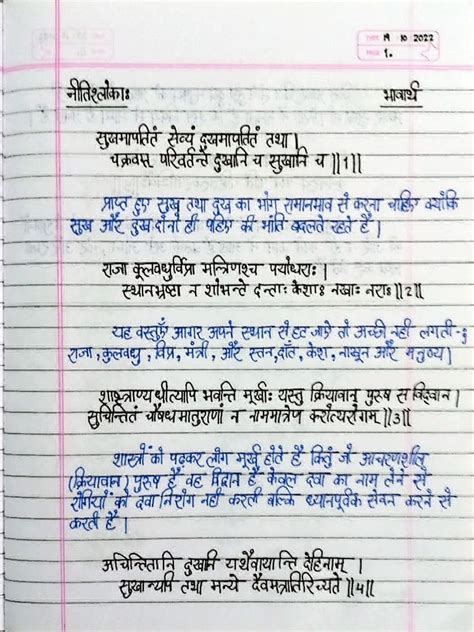 DATE 19 10 2022
PAGE 1.
नीतिश्लोकाः भावार्थ
सुखमापतितं सेव्यं दुखमापतितं तथा |
चक्रवम् परिवर्तन्ते दुखानि च सुखानि च ||1||
प्राप्त हुए सुख तथा दुख का भोग समानभाव से करना चाहिए क्योंकि
सुख और दुख दोनो ही पहिए की भांति बदलते रहते है |
राजा कूलवधुर्विप्रा मन्त्रिणश्च पयोधराः |
स्थानभ्रष्टा न शोभन्ते दन्ताः केशाः नखाः नराः ||2||
यह वस्तुएँ आगर अपने स्थान से हट जाए तो अच्छी नही लगती -:
राजा, कुलवधु, विप्र, मंत्री, और स्तन, दाँत, केश, नाखून और मनुष्य |
शास्त्राण्यधीत्यापि भवन्ति मूर्खाः यस्तु क्रियावान् पुरुष स विद्वान |
सुचिन्तितं चौषधमातुराणां न नाममात्रेण करोत्यरोगम् ||3||
शास्त्रों को पढ़कर लोग मूर्ख होते है किंतु जो आचरणशील
(क्रियावान) पुरुष है वह विद्वान है केवल दवा का नाम लेने से
रोगियों को दवा निरोग नही करती बल्कि ध्यानपूर्वक सेवन करने से
करती है |
अचिन्तितानि दुखानि यथैवायान्ति देहिनाम् |
सुखान्यपि तथा मन्ये दैवमत्रातिरिच्यते ||4||